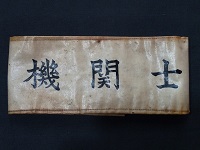 機関士